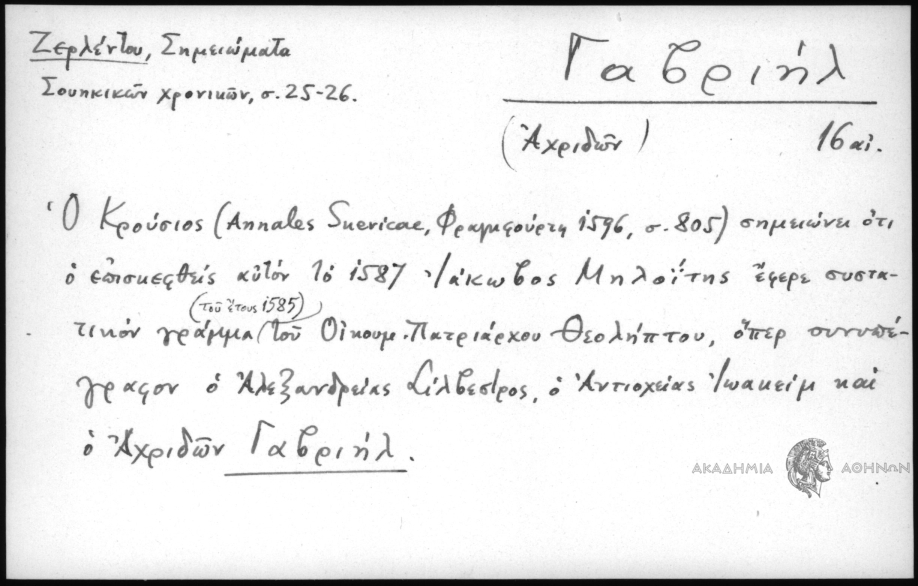 Ζερλέντου, Σημειώματα
Σουηκικῶν χρονικῶν, σ. 25-26.
Γαβριήλ
(Ἀχριδῶν) 16 αἰ.
Ὁ Κρούσιος (Annales Suericae, Φραγκφούρτη 1596, σ. 805) σημειώνει ὅτι
ὁ ἐπισκεφθείς αὐτόν τό 1587 Ἰάκωβος Μηλοΐτης ἔφερε συστα-
(τοῦ ἔτους 1585)
τικόν γράμμα τοῦ Οἰκουμ. Πατριάρχου Θεολήπτου, ὅπερ συνυπέ-
γραφον ὁ Ἀλεξανδρείας Σίλβεστρος, ὁ Ἀντιοχείας Ἰωακείμ καί
ὁ Ἀχριδῶν Γαβριήλ.
ΑΚΑΔΗΜΙΑ ΑΘΗΝΩΝ